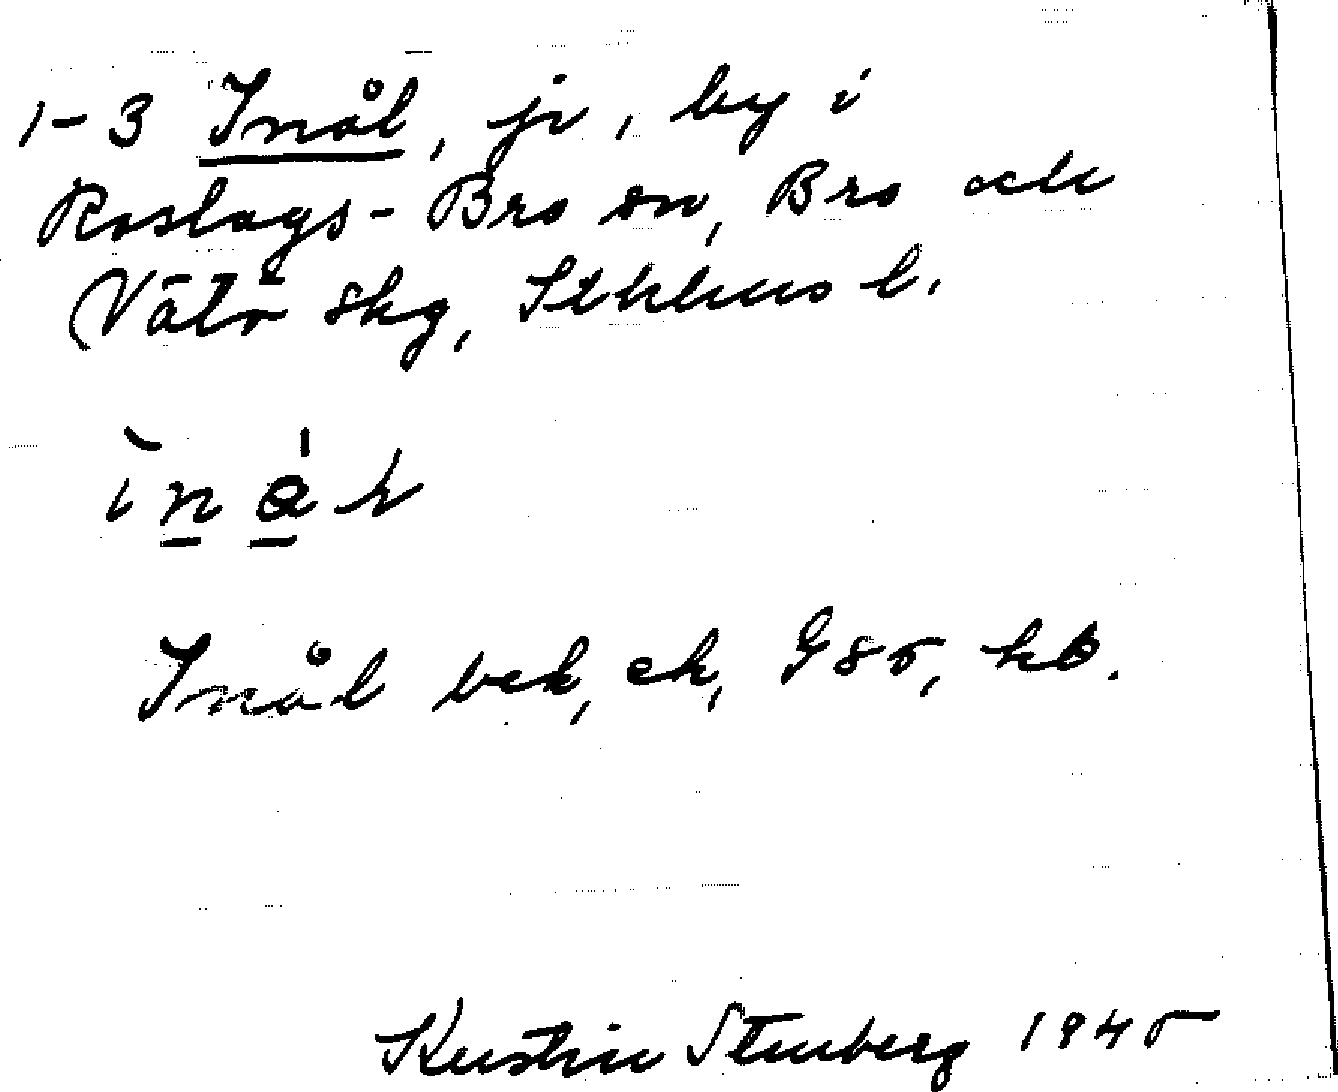 1-3 Inål, jr, by i
Roslags-Bro sn, Bro och
Vätö skg, Sthlms l.
Inål bek, ek, Gsö, kb.
Kerstin Stenberg 1945